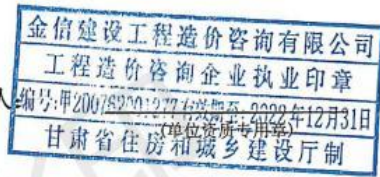 金信建设工程造价咨询有限公司
工程造价咨询企业执业印章
编号:甲200762001277有效期至:2022年12月31日
(单位资质专用章)
甘肃省住房和城乡建设厅制